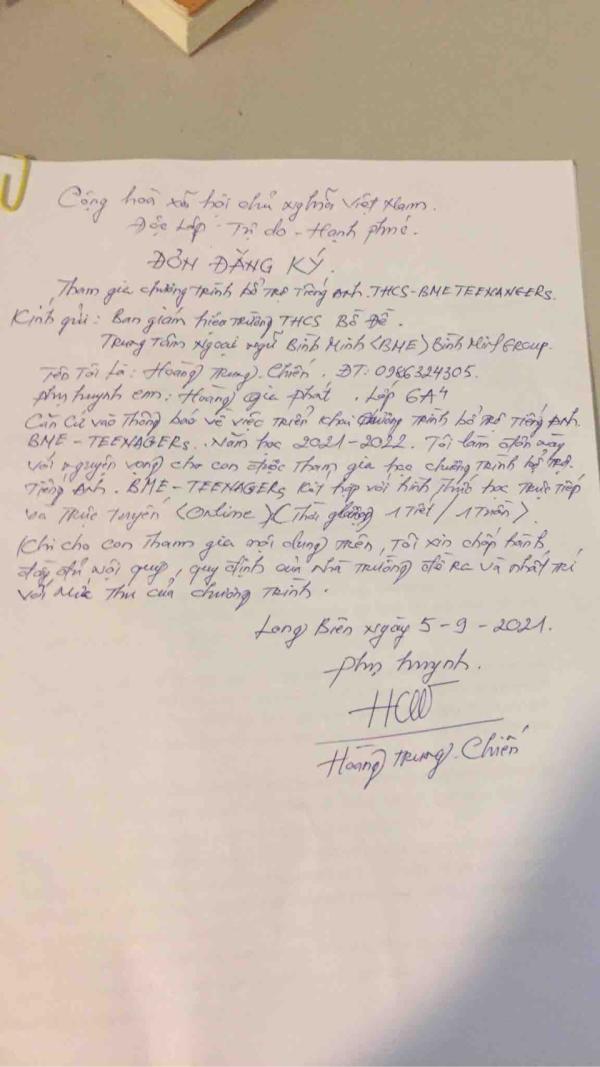 Cộng hoà xã hội chủ nghĩa Việt Nam.
Độc Lập - Tự do - Hạnh phúc.
ĐƠN ĐĂNG KÝ.
Tham gia chương trình bổ trợ Tiếng Anh. THCS-BME TEENANGERS.
Kính gửi: Ban giám hiệu Trường THCS Bồ Đề.
Trung tâm ngoại ngữ Bình Minh <BME> Bình Minh Group.
Tên Tôi Là: Hoàng Trung Chiến. ĐT: 0986324305.
phụ huynh em: Hoàng gia phát. Lớp 6A4
Căn Cứ vào Thông báo về việc triển khai Chương trình bổ trợ Tiếng Anh.
BME - TEENAGERS. Năm học 2021-2022. Tôi làm đơn này
với nguyện vọng cho con được tham gia học chương trình bổ trợ.
Tiếng Anh. BME-TEENAGERS kết hợp với hình thức học Trực Tiếp
và Trực tuyến <Online> (Thời lượng 1 Tiết / 1 Tuần).
Khi cho con Tham gia nội dung Trên, Tôi xin chấp hành
đầy đủ nội quy, quy định của nhà trường đề Ra và nhất Trí
với Mức Thu của chương Trình.
Long Biên ngày 5-9-2021.
phụ huynh.
Hoàng Trung Chiến